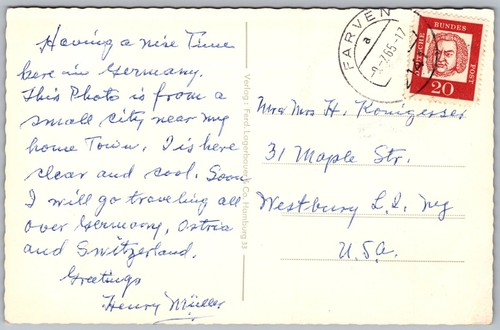 Having a nice Time
here in Germany.
This Photo is from a
small city near my
home Town. I is here
clear and cool. Soon
I will go traveling all
over Germany, Astria
and Switzerland.
Greetings
Henry Müller
Verlag: Ferd. Lagerbauer & Co, Hamburg 33
FARVEN
a
-9.-7.65-17
DEUTSCHE BUNDESPOST
20
Mr a Mrs H. Konigesser
31 Maple Str.
Westbury L.I. Ny
U.S.A.